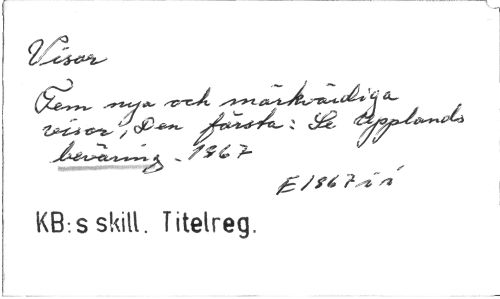 Visor
Fem nya och märkvärdiga
visor, Den första: Se Upplands
beväring. 1867
E1867 i i
KB:s skill. Titelreg.